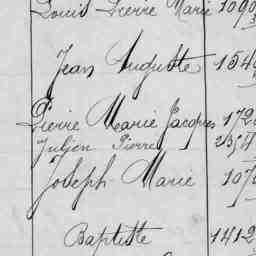 Louis Pierre Marie 1090
Jean Auguste 154
Pierre Marie Jacques 172
Julien Pierre 2354
Joseph Marie 107
Baptiste 1412